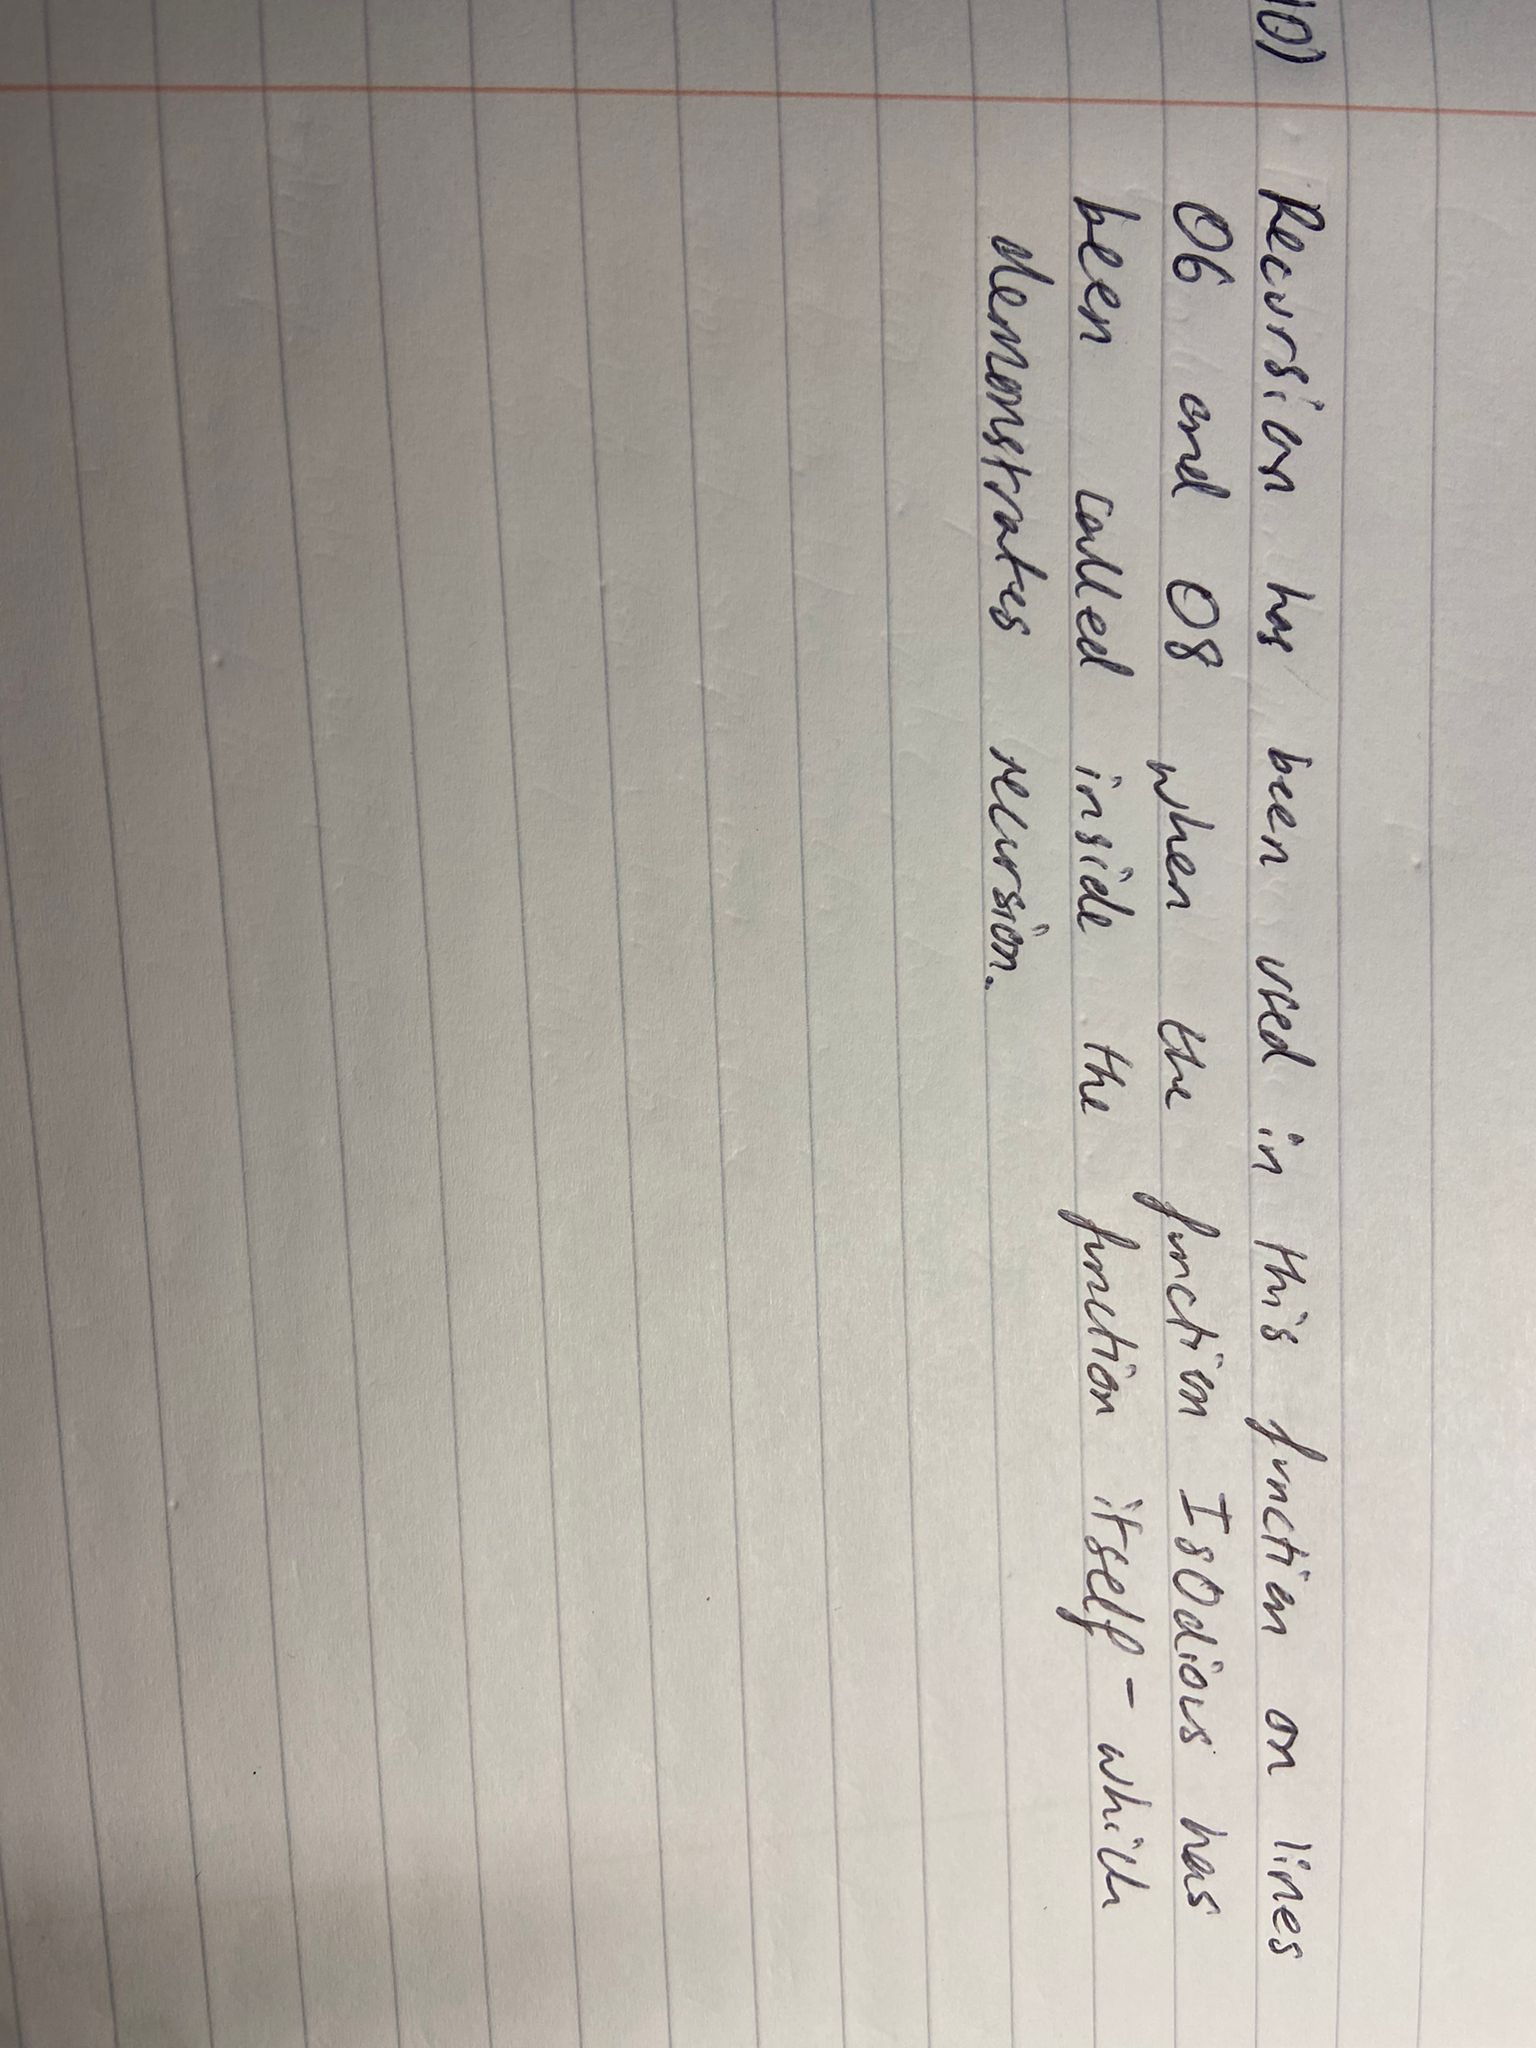 10) Recursion has been used in this function on lines
06 and 08 when the function IsOdious has
been called inside the function itself - which
demonstrates recursion.